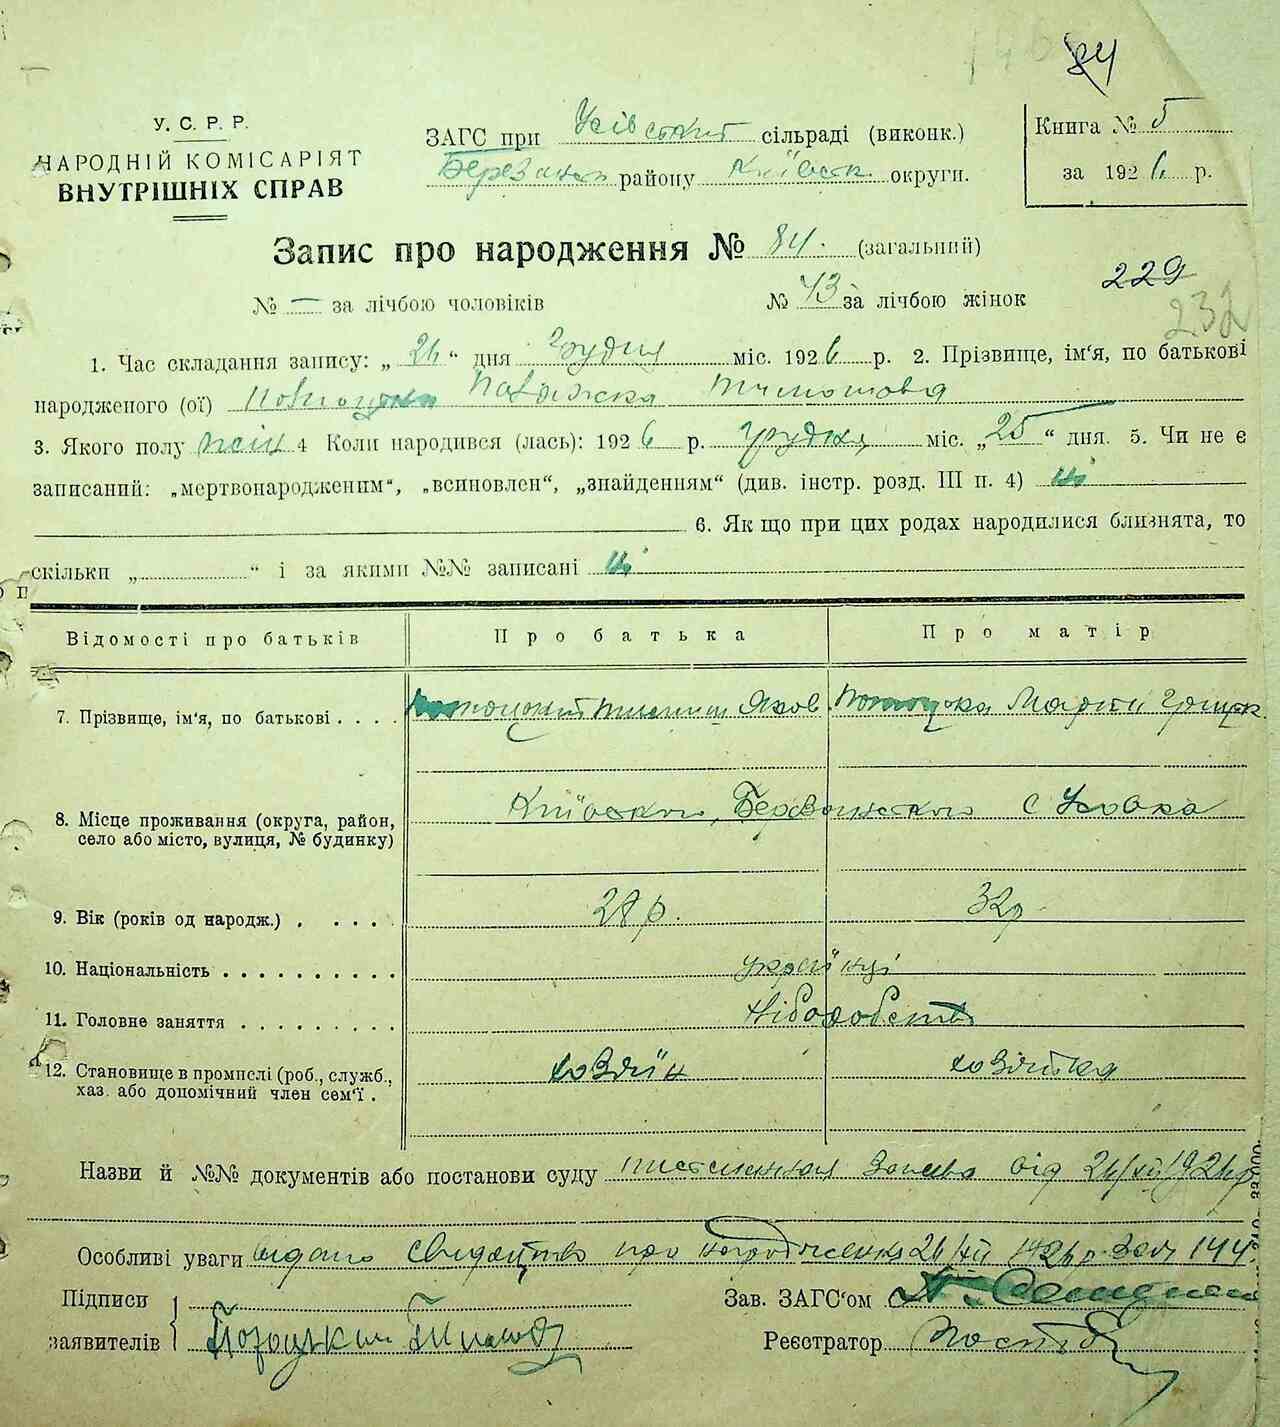 84
У. С. Р. Р.
НАРОДНІЙ КОМІСАРІЯТ
ВНУТРІШНІХ СПРАВ
ЗАГС при Усівській сільраді (виконк.)
Березанськ району Київськ округи.
Книга № 5
за 1926 р.
Запис про народження № 84. (загальний)
№ — за лічбою чоловіків
№ 43 за лічбою жінок
229
232
1. Час складання запису: „26“ дня Грудня міс. 1926 р. 2. Прізвище, ім‘я, по батькові
народженого (ої) Потоцька Тимошова
3. Якого полу жін 4 Коли народився (лась): 1926 р. грудня міс. „25“ дня. 5. Чи не є
записаний: „мертвонародженим“, „всиновлен“, „знайденням“ (див. інстр. розд. III п. 4) ні
6. Як що при цих родах народилися близнята, то
скільки „ “ і за якими №№ записані ні
Відомості про батьків Про батька Про матір
7. Прізвище, ім‘я, по батькові . . . . Потоцький Тимиш Яков. Потоцька Марія Грицьк.
8. Місце проживання (округа, район, Київської, Березанського с Усовка
село або місто, вулиця, № будинку)
9. Вік (років од народж.) . . . . . 28 р. 32 р.
10. Національність . . . . . . . . . . українці
11. Головне заняття . . . . . . . . . . хліборобство
12. Становище в промислі (роб., служб., хозяїн хозяйка
хаз. або допомічний член сем‘ї .
Назви й №№ документів або постанови суду письменная заява від 26/XII 1926 р
Особливі уваги видано свидоцтво про народження 26/XII 1926 р. за № 144.
Підписи
заявителів Потоцький Тимош
Зав. ЗАГС‘ом
Реєстратор